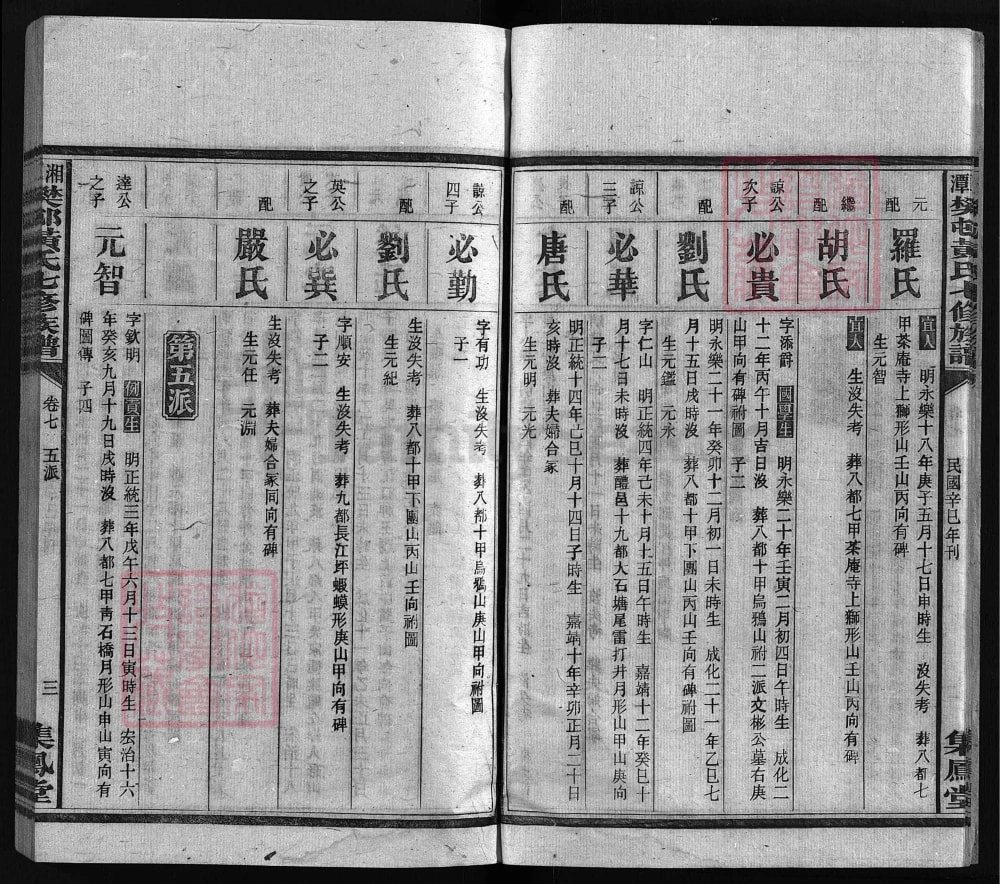 潭
黄氏七修族譜
民國辛巳年刊
集鳳堂
元配
羅氏
宜人 明永樂十八年庚子五月十七日申時生 沒失考 葬八都七
甲茶庵寺上獅形山壬山丙向有碑
生元智
繼配
胡氏
宜人 生沒失考 葬八都七甲茶庵寺上獅形山壬山丙向有碑
諒公次子
必貴
字添爵 國學生 明永樂二十年壬寅二月初四日午時生 成化二
十二年丙午十月吉日沒 葬八都十甲烏鴉山祔二派文彬公墓右庚
山甲向有碑祔圖 子二
配
劉氏
明永樂二十一年癸卯十二月初一日未時生 成化二十一年乙巳七
月十五日戌時沒 葬八都十甲下團山丙山壬向有碑祔圖
生元鑑 元永
諒公三子
必華
字仁山 明正統四年己未十月上五日午時生 嘉靖十二年癸巳十
月十七日未時沒 葬醴邑十九都大石塘尾雷打井月形山甲山庚向
子二
配
唐氏
明正統十四年己巳十月十四日子時生 嘉靖十年辛卯正月二十日
亥時沒 葬夫婦合冢
生元明 元光
諒公四子
必勤
字有功 生沒失考 葬八都十甲烏鴉山庚山甲向祔圖
子一
配
劉氏
生沒失考 葬八都十甲下團山丙山壬向祔圖
生元紀
英公之子
必巽
字順安 生沒失考 葬九都長江坪蝦蟆形庚山甲向有碑
子二
配
嚴氏
生沒失考 葬夫婦合冢同向有碑
生元任 元淵
第五派
達公之子
元智
字欽明 例貢生 明正統三年戊午六月十三日寅時生 宏治十六
年癸亥九月十九日戌時沒 葬八都七甲靑石橋月形山申山寅向有
碑圖傳 子四
湘
黄氏七修族譜
卷七 五派
三
集鳳堂